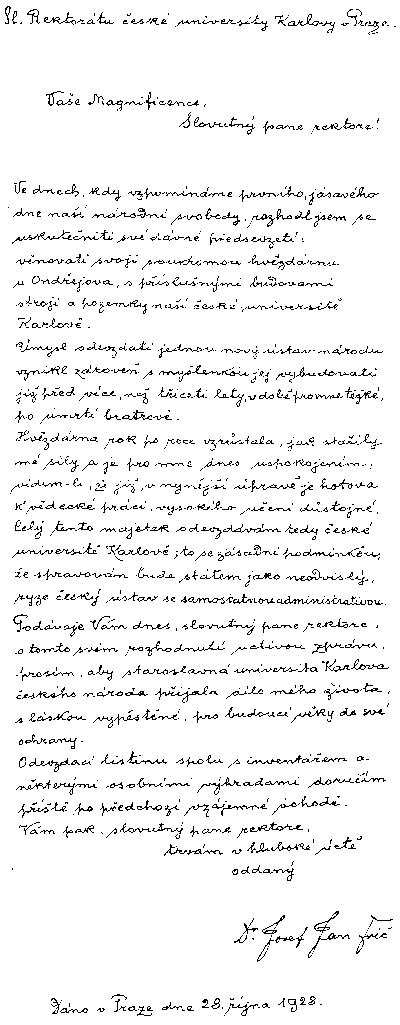 Sl. Rektorátu české university Karlovy v Praze.
Vaše Magnificence,
Slovutný pane rektore!
Ve dnech, kdy vzpomínáme prvního, jásavého
dne naší národní svobody, rozhodl jsem se
uskutečniti své dávné předsevzetí:
věnovati svoji soukromou hvězdárnu
u Ondřejova, s příslušnými budovami
stroji a pozemky naší české universitě
Karlově.
Úmysl odevzdati jednou nový ústav národu
vznikl zároveň s myšlenkou jej vybudovati
již před více, než třiceti lety, v době pro mne těžké,
po úmrtí bratrově.
Hvězdárna rok po roce vzrůstala, jak stačily
mé síly a je pro mne dnes uspokojením,
vidím-li, že již v nynější úpravě je hotova
k vědecké práci, vysokého učení důstojné.
Celý tento majetek odevzdávám tedy české
universitě Karlově; to se zásadní podmínkou,
že spravován bude státem jako neodvislý,
ryze český ústav se samostatnou administrativou.
Podávaje Vám dnes, slovutný pane rektore,
o tomto svém rozhodnutí uctivou zprávu,
prosím, aby staroslavná universita Karlova
českého národa přijala dílo mého života,
s láskou vypěstěné, pro budoucí věky do své
ochrany.
Odevzdací listinu spolu s inventářem a
některými osobními výhradami doručím
příště po předchozí vzájemné dohodě.
Vám pak, slovutný pane rektore,
trvám v hluboké úctě
oddaný
Dr. Josef Jan Frič
Dáno v Praze dne 28. října 1928.